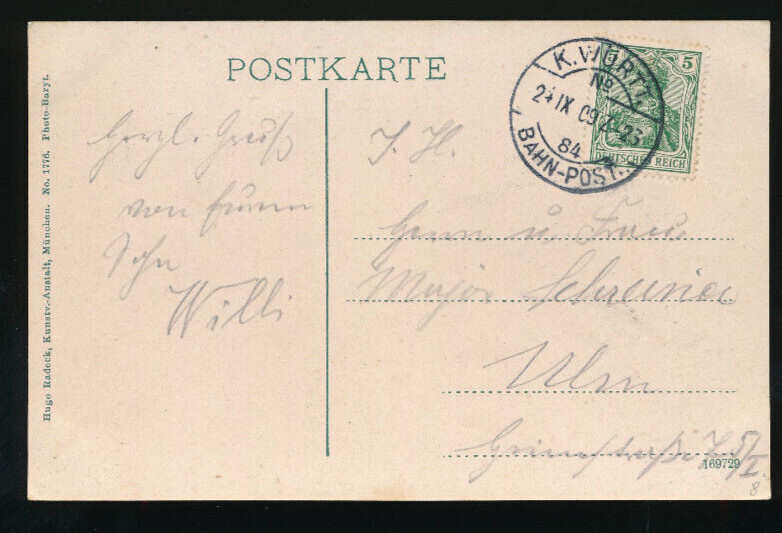 POSTKARTE
K. WÜRTT.
No
24 IX 09 Z-23
84
BAHN-POST.
5
DEUTSCHES REICH
Herzl. Gruß
von Eurem
Sohn
Willi
Herrn u Frau
Major Schreiner
Ulm
169729
Hugo Radeck, Kunstv.-Anstalt, München. No. 1776. Photo-Baryt.